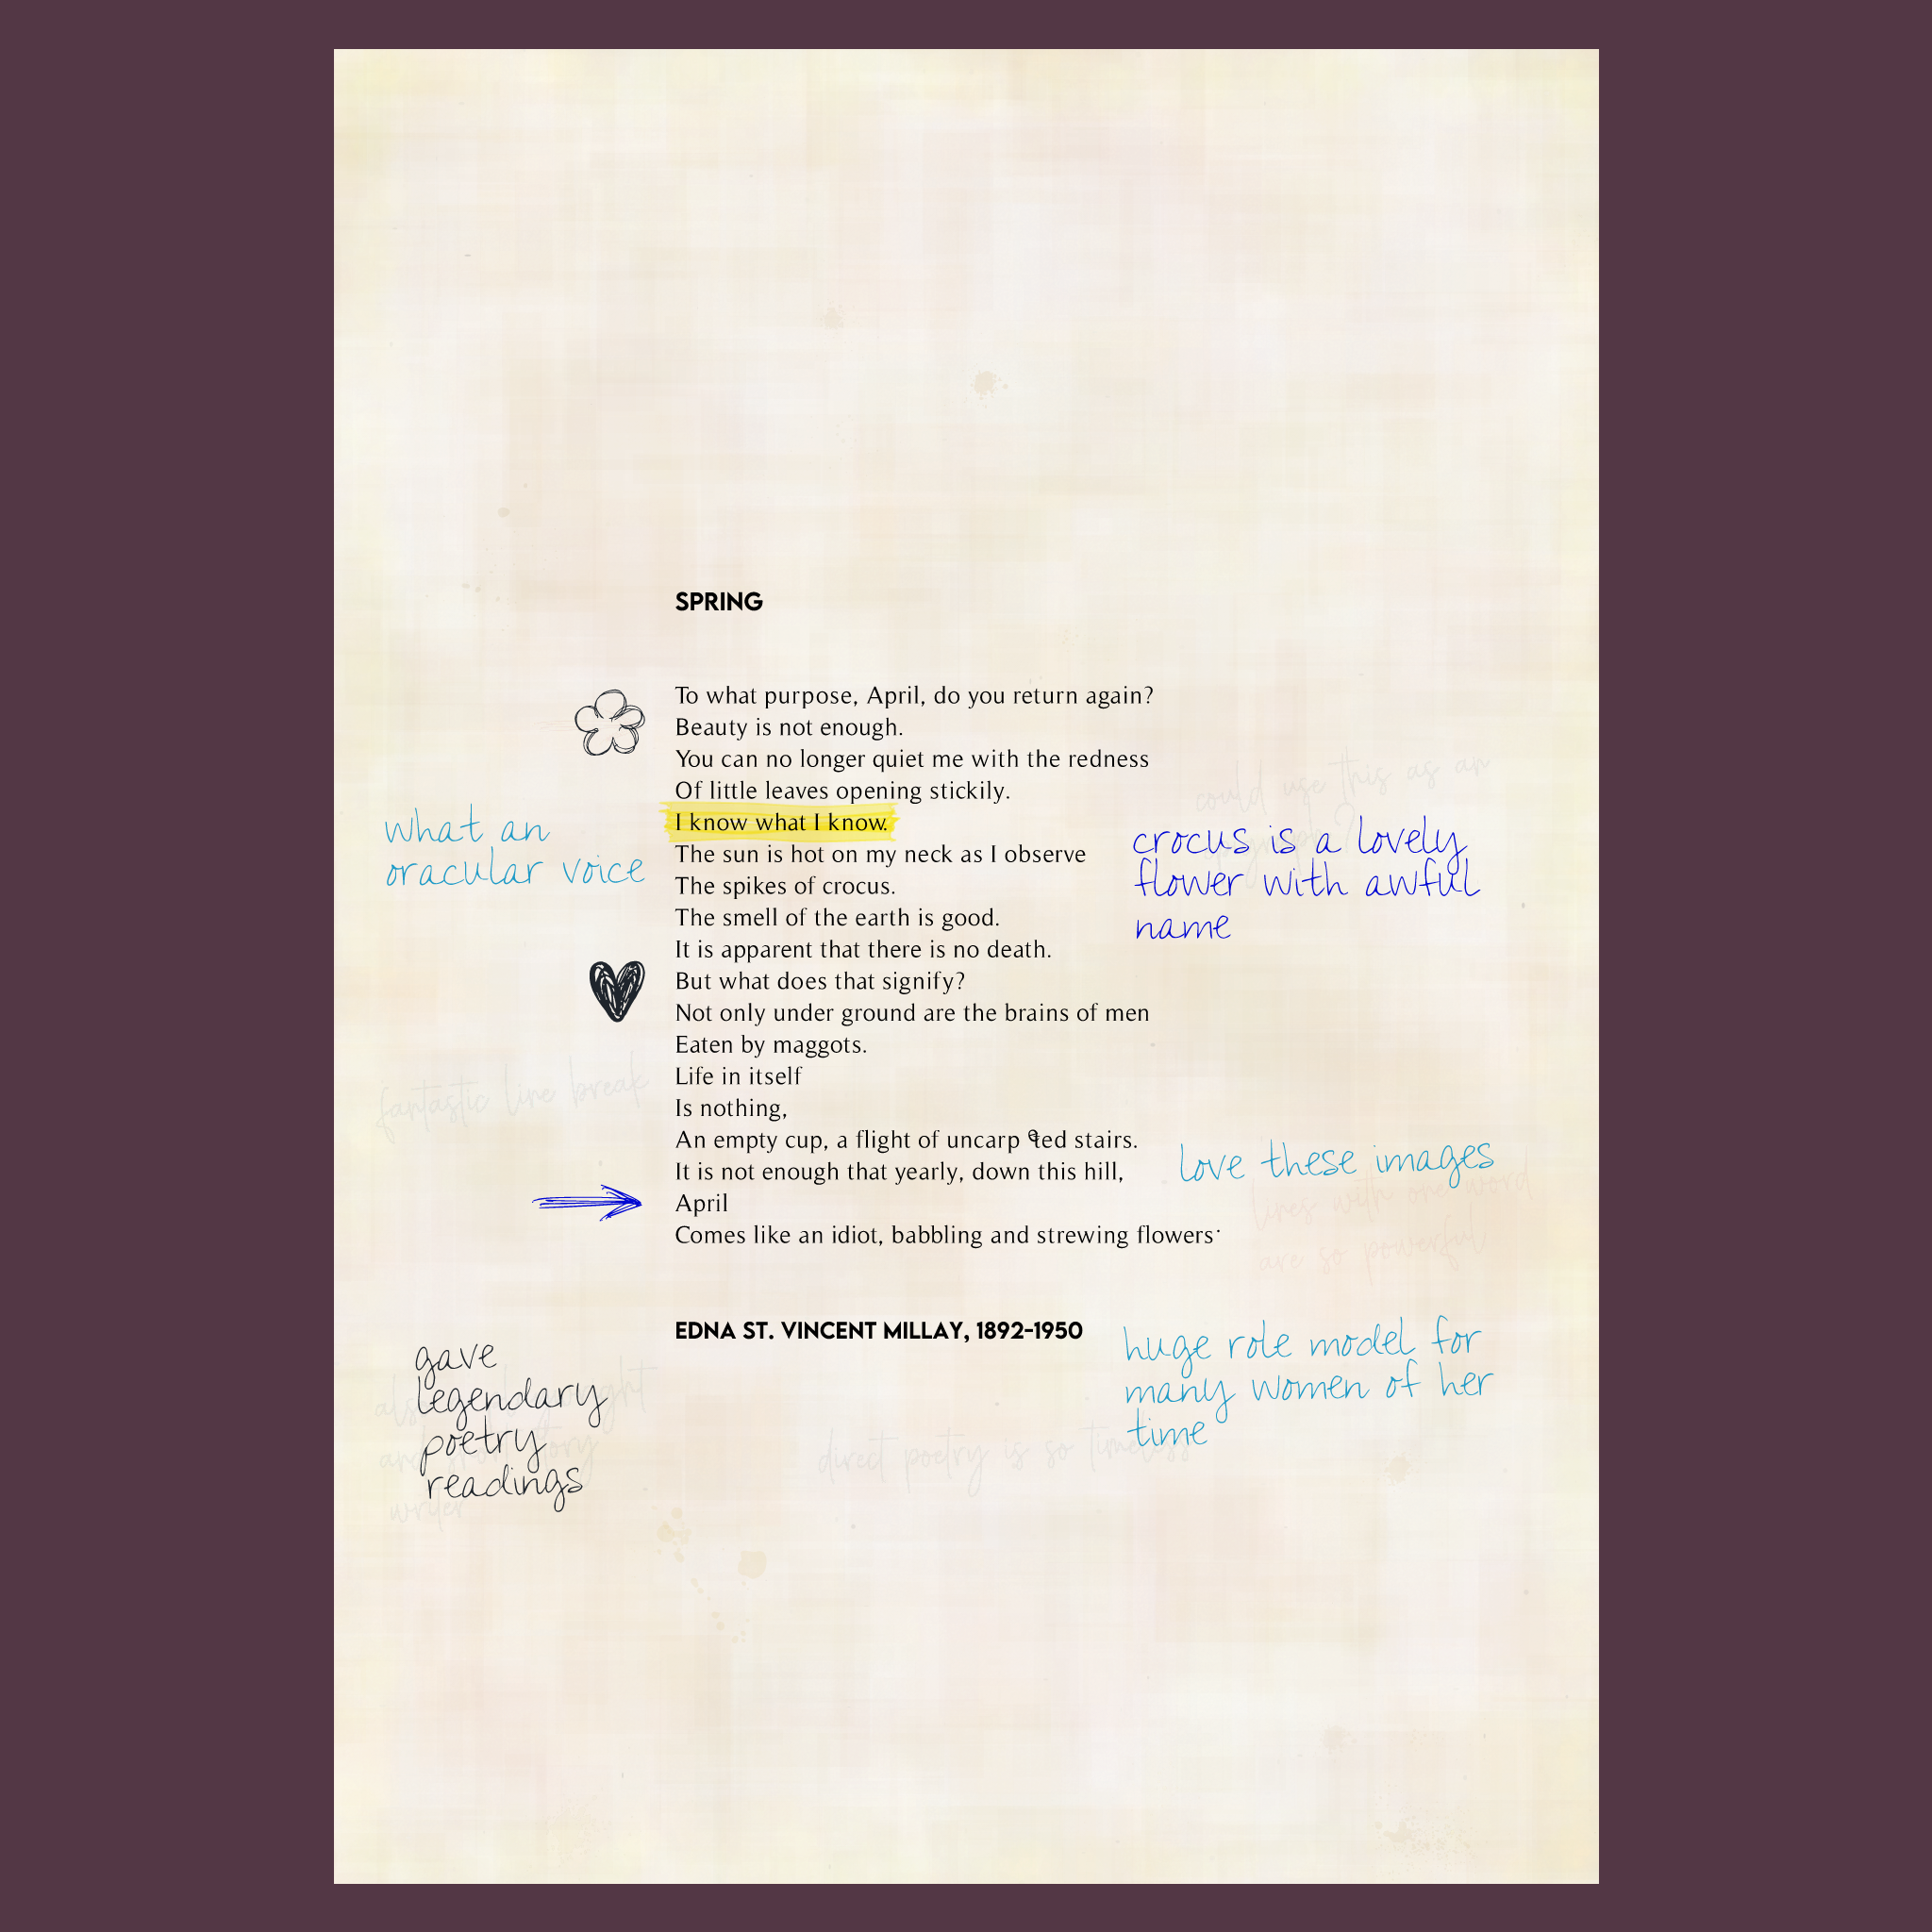 SPRING
To what purpose, April, do you return again?
Beauty is not enough.
You can no longer quiet me with the redness
Of little leaves opening stickily.
I know what I know.
The sun is hot on my neck as I observe
The spikes of crocus.
The smell of the earth is good.
It is apparent that there is no death.
But what does that signify?
Not only under ground are the brains of men
Eaten by maggots.
Life in itself
Is nothing,
An empty cup, a flight of uncarp eted stairs.
It is not enough that yearly, down this hill,
April
Comes like an idiot, babbling and strewing flowers.
EDNA ST. VINCENT MILLAY, 1892-1950
what an
oracular voice
could use this as an
crocus is a lovely
flower with awful
name
fantastic line break
love these images
lines with one word
are so powerful
gave
legendary
poetry
readings
huge role model for
many women of her
time
direct poetry is so timeless
writer